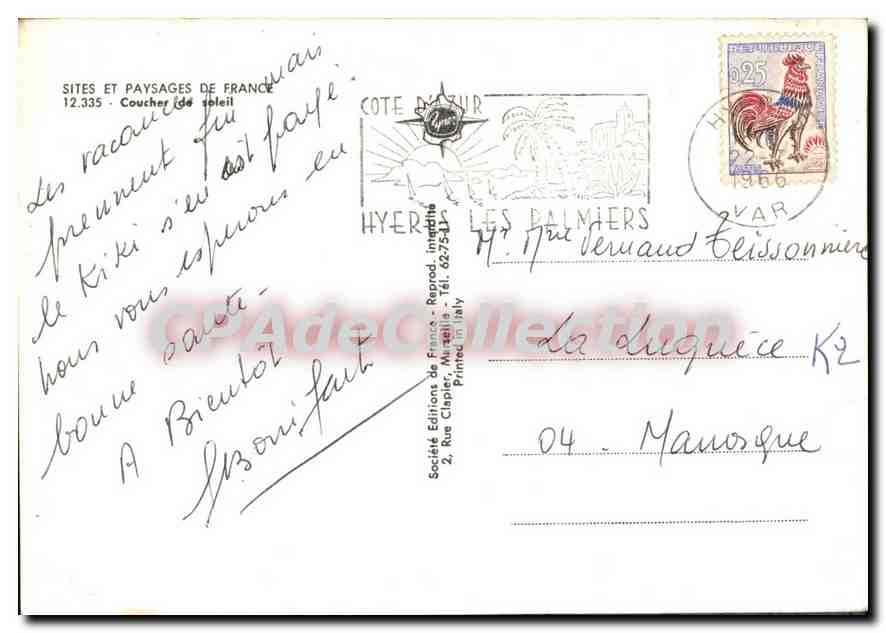 SITES ET PAYSAGES DE FRANCE
12.335 - Coucher de soleil
Les vacances mais
prennent fin
le Kiki s'en est payé.
nous vous esperons en
bonne sante -
A Bientôt
Bonifart
COTE D'AZUR
HYERES LES PALMIERS
REPUBLIQUE FRANCAISE
0,25
HYERES
22
1966
VAR
Mr Mme Fernand Teissonniere
La Luquèce K2
04 - Manosque
Société Editions de France - Reprod. interdite
2, Rue Clapier, Marseille - Tél. 62-75-11
Printed in Italy
CPAdeCollection